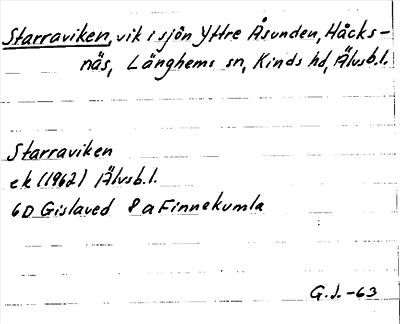 Starraviken, vik i sjön Yttre Åsunden, Håcks-
näs, Länghems sn, Kinds hd, Älvsb.l.
Starraviken
ek (1962) Älvsb.l.
6D Gislaved 8a Finnekumla
G.J.-63